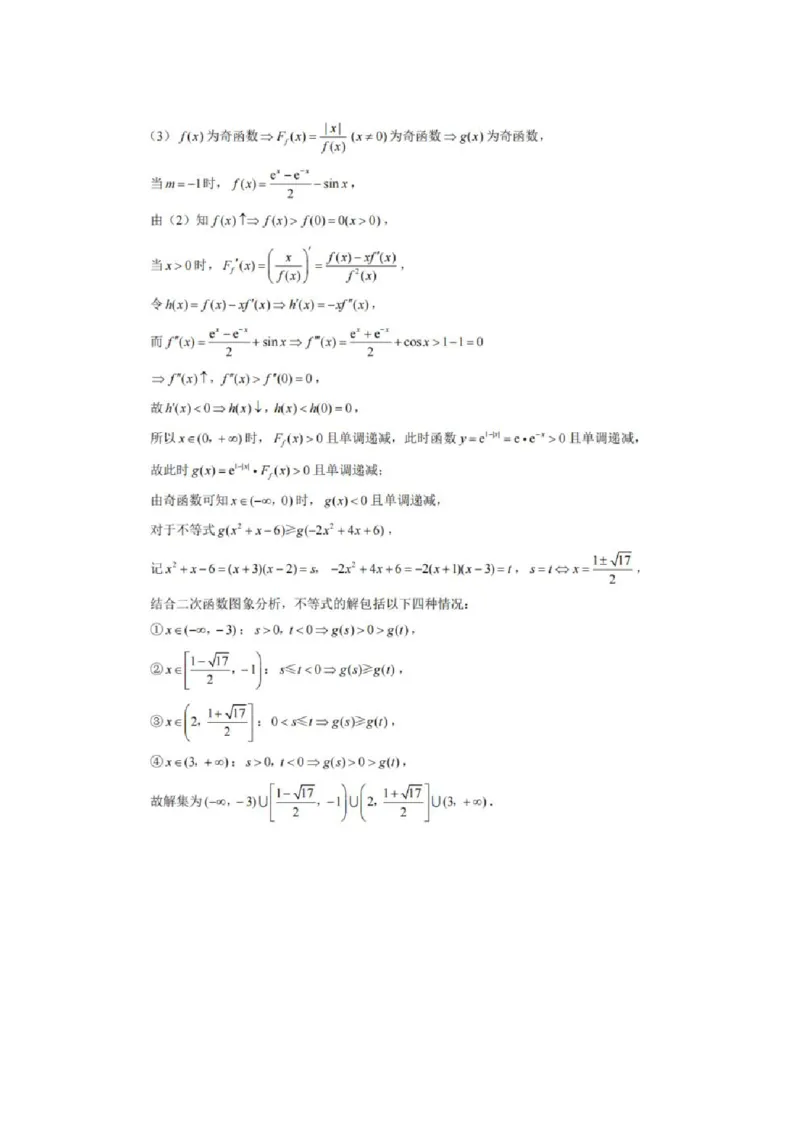 （3）f(x)为奇函数⇒F_f(x)=|x|/f(x) (x≠0)为奇函数⇒g(x)为奇函数，
当m=-1时，f(x)=(e^x-e^{-x})/2-sinx，
由（2）知f(x)↑⇒f(x)>f(0)=0(x>0)，
当x>0时，F_f′(x)=(x/f(x))′=(f(x)-xf′(x))/f²(x)，
令h(x)=f(x)-xf′(x)⇒h′(x)=-xf″(x)，
而f″(x)=(e^x-e^{-x})/2+sinx⇒f‴(x)=(e^x+e^{-x})/2+cosx>1-1=0
⇒f″(x)↑，f″(x)>f″(0)=0，
故h′(x)<0⇒h(x)↓，h(x)<h(0)=0，
所以x∈(0，+∞)时，F_f(x)>0且单调递减，此时函数y=e^{1-|x|}=e•e^{-x}>0且单调递减，
故此时g(x)=e^{1-|x|}•F_f(x)>0且单调递减；
由奇函数可知x∈(-∞，0)时，g(x)<0且单调递减，
对于不等式g(x²+x-6)≥g(-2x²+4x+6)，
记x²+x-6=(x+3)(x-2)=s，-2x²+4x+6=-2(x+1)(x-3)=t，s=t⇔x=(1±√17)/2，
结合二次函数图象分析，不等式的解包括以下四种情况：
①x∈(-∞，-3)：s>0，t<0⇒g(s)>0>g(t)，
②x∈[(1-√17)/2，-1)：s≤t<0⇒g(s)≥g(t)，
③x∈(2，(1+√17)/2]：0<s≤t⇒g(s)≥g(t)，
④x∈(3，+∞)：s>0，t<0⇒g(s)>0>g(t)，
故解集为(-∞，-3)∪[(1-√17)/2，-1)∪(2，(1+√17)/2]∪(3，+∞)．